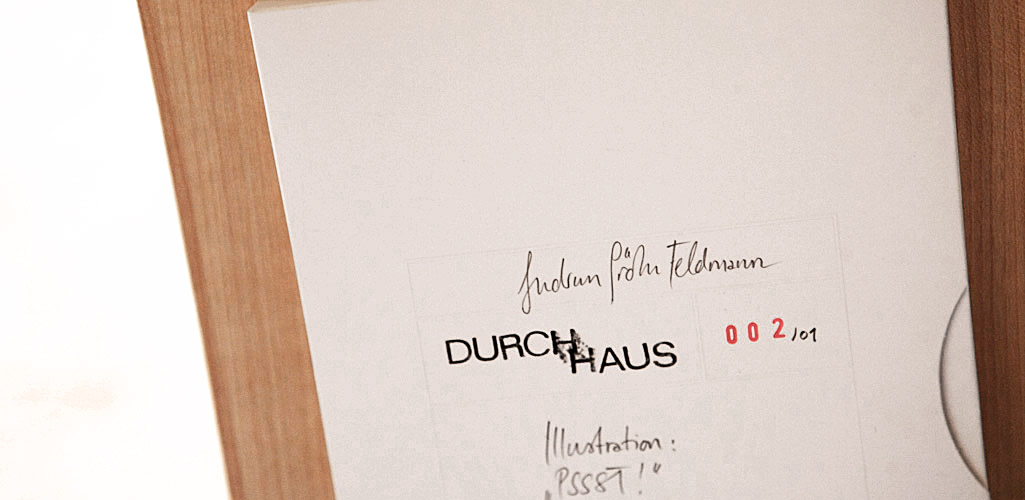 Gudrun Feldmann
DURCHHAUS 002/01
Illustration:
„PSSST!“